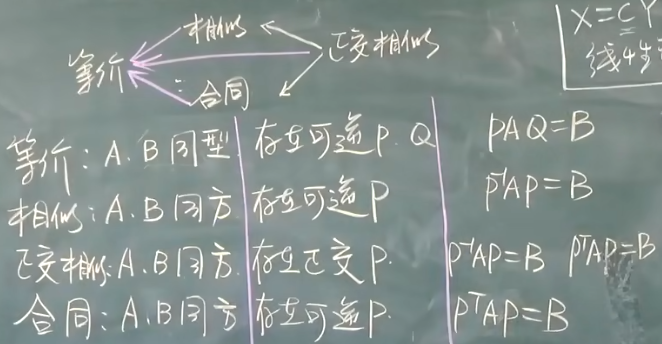 相似
正交相似
等价
合同
X=CY
线性
等价: A.B同型 存在可逆P.Q PAQ=B
相似: A.B同方 存在可逆P P⁻¹AP=B
正交相似: A.B同方. 存在正交P. P⁻¹AP=B PᵀAP=B
合同: A.B同方 存在可逆P. PᵀAP=B